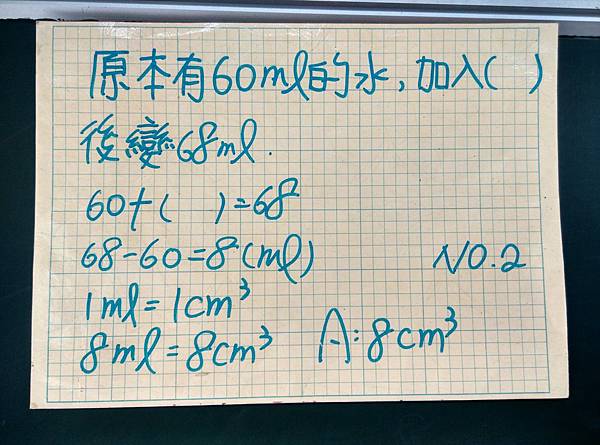 原本有60ml的水,加入( )
後變68ml.
60+( )=68
68-60=8(ml)
NO.2
1ml=1cm³
8ml=8cm³
A:8cm³